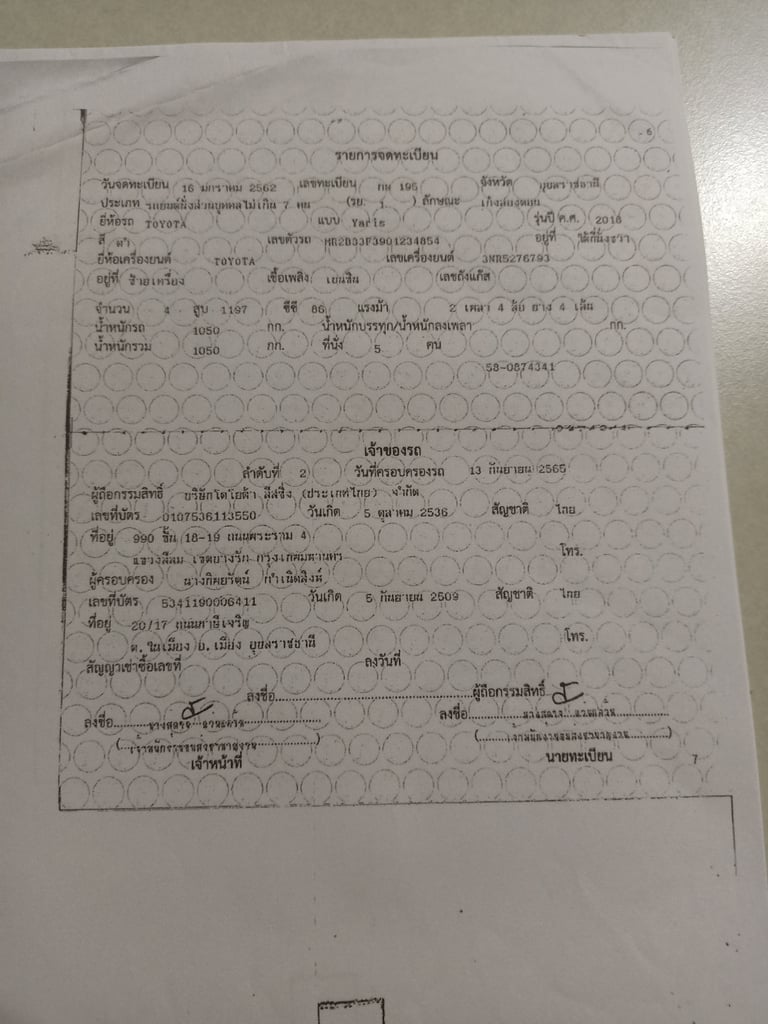 6
รายการจดทะเบียน
วันจดทะเบียน 16 มกราคม 2562 เลขทะเบียน กน 195 จังหวัด อุบลราชธานี
ประเภท รถยนต์นั่งส่วนบุคคลไม่เกิน 7 คน (รย. 1 ) ลักษณะ เก๋งสองตอน
ยี่ห้อรถ TOYOTA แบบ Yaris รุ่นปี ค.ศ. 2018
สี ดำ เลขตัวรถ MR2B33F3901234854 อยู่ที่ ใต้ที่นั่งขวา
ยี่ห้อเครื่องยนต์ TOYOTA เลขเครื่องยนต์ 3NR5276793
อยู่ที่ ซ้ายเครื่อง เชื้อเพลิง เบนซิน เลขถังแก๊ส
จำนวน 4 สูบ 1197 ซีซี 86 แรงม้า 2 เพลา 4 ล้อ ยาง 4 เส้น
น้ำหนักรถ 1050 กก. น้ำหนักบรรทุก/น้ำหนักลงเพลา กก.
น้ำหนักรวม 1050 กก. ที่นั่ง 5 คน
58-0874341
เจ้าของรถ
ลำดับที่ 2 วันที่ครอบครองรถ 13 กันยายน 2565
ผู้ถือกรรมสิทธิ์ บริษัทโตโยต้า ลีสซิ่ง (ประเทศไทย) จำกัด
เลขที่บัตร 0107536113550 วันเกิด 5 ตุลาคม 2536 สัญชาติ ไทย
ที่อยู่ 990 ชั้น 18-19 ถนนพระราม 4
แขวงสีลม เขตบางรัก กรุงเทพมหานคร โทร.
ผู้ครอบครอง
เลขที่บัตร 5341190006411 วันเกิด 5 กันยายน 2509 สัญชาติ ไทย
ที่อยู่ 20/17 ถนนภาษีเจริญ
ต. ในเมือง อ. เมือง อุบลราชธานี โทร.
สัญญาเช่าซื้อเลขที่ ลงวันที่
ลงชื่อ ผู้ถือกรรมสิทธิ์
ลงชื่อ ลงชื่อ
เจ้าหน้าที่ นายทะเบียน
7